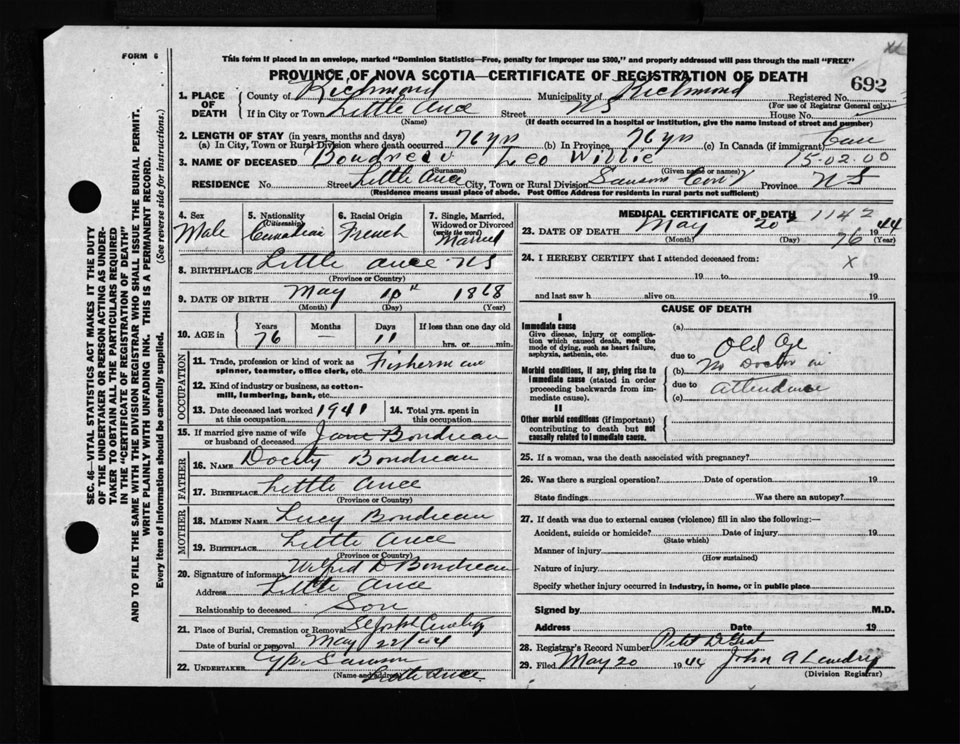 FORM 6
This form if placed in an envelope, marked "Dominion Statistics—Free, penalty for improper use $300," and properly addressed will pass through the mail "FREE"
PROVINCE OF NOVA SCOTIA—CERTIFICATE OF REGISTRATION OF DEATH
692
1. PLACE OF DEATH
County of Richmond Municipality of Richmond Registered No.
(For use of Registrar General only)
If in City or Town Little Ance Street NS House No.
(Name) (If death occurred in a hospital or institution, give the name instead of street and number)
2. LENGTH OF STAY (in years, months and days)
(a) In City, Town or Rural Division where death occurred 76 yrs (b) In Province 76 yrs (c) In Canada (if immigrant)
3. NAME OF DECEASED Boudreau Leo Willie 15-02-00
(Surname) (Given name or names)
RESIDENCE No. Street Little Ance City, Town or Rural Division Province NS
(Residence means usual place of abode. Post Office Address for residents in rural parts not sufficient)
4. Sex Male
5. Nationality (Citizenship) Canadian
6. Racial Origin French
7. Single, Married, Widowed or Divorced (write the word) Married
8. BIRTHPLACE Little Ance NS
(Province or Country)
9. DATE OF BIRTH May 10th 1868
(Month) (Day) (Year)
10. AGE in Years 76 Months — Days 11 If less than one day old hrs. or min.
OCCUPATION
11. Trade, profession or kind of work as spinner, teamster, office clerk, etc. Fisherman
12. Kind of industry or business, as cotton-mill, lumbering, bank, etc.
13. Date deceased last worked at this occupation 1941
14. Total yrs. spent in this occupation
15. If married give name of wife or husband of deceased Jane Boudreau
FATHER
16. NAME Boudreau
17. BIRTHPLACE Little Ance
(Province or Country)
MOTHER
18. MAIDEN NAME Lucy Boudreau
19. BIRTHPLACE Little Ance
(Province or Country)
20. Signature of informant Wilfred D Boudreau
Address Little Ance
Relationship to deceased Son
21. Place of Burial, Cremation or Removal
Date of burial or removal May 22/44
22. UNDERTAKER Samson
(Name and address) Little Ance
MEDICAL CERTIFICATE OF DEATH 1142
23. DATE OF DEATH May 20 1944
(Month) (Day) 76 (Year)
24. I HEREBY CERTIFY that I attended deceased from: x
19 to 19
and last saw h alive on 19
CAUSE OF DEATH
I
Immediate cause
Give disease, injury or complication which caused death, not the mode of dying, such as heart failure, asphyxia, asthenia, etc.
(a)
due to Old Age
Morbid conditions, if any, giving rise to immediate cause (stated in order proceeding backwards from immediate cause).
(b) No Doctor in
due to Attendance
(c)
II
Other morbid conditions (if important) contributing to death but not causally related to immediate cause.
25. If a woman, was the death associated with pregnancy?
26. Was there a surgical operation? Date of operation 19
State findings Was there an autopsy?
27. If death was due to external causes (violence) fill in also the following:—
Accident, suicide or homicide? Date of injury 19
(State which)
Manner of injury
(How sustained)
Nature of injury
Specify whether injury occurred in industry, in home, or in public place
Signed by M.D.
Address Date 19
28. Registrar's Record Number Petit De Grat
29. Filed May 20 1944 John A Landry
(Division Registrar)
SEC. 46—VITAL STATISTICS ACT MAKES IT THE DUTY
OF THE UNDERTAKER OR PERSON ACTING AS UNDER-
TAKER TO OBTAIN ALL THE PARTICULARS REQUIRED
IN THE "CERTIFICATE OF REGISTRATION OF DEATH"
AND TO FILE THE SAME WITH THE DIVISION REGISTRAR WHO SHALL ISSUE THE BURIAL PERMIT.
WRITE PLAINLY WITH UNFADING INK. THIS IS A PERMANENT RECORD.
Every item of information should be carefully supplied. (See reverse side for instructions.)